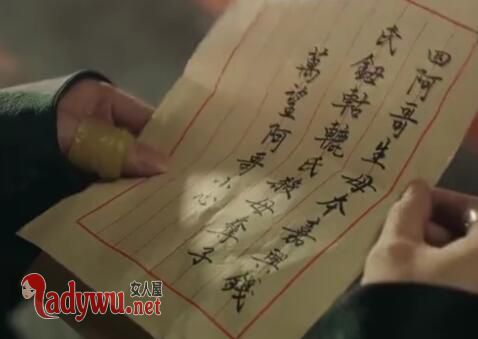 四阿哥生母本嘉興錢
氏鈕軲轆氏殺母奪子
萬望阿哥小心
女人屋
Ladywu.net